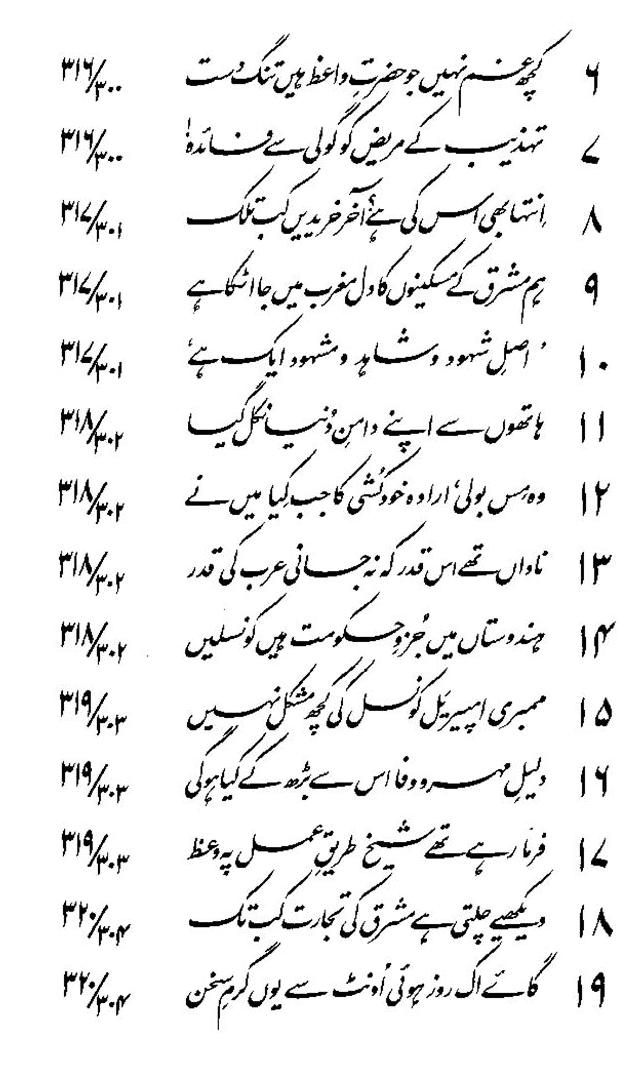 ۶ کچھ غم نہیں جو حضرتِ واعظ ہیں تنگ دست ۳۱۶/۳۰۰
۷ تہذیب کے مریض کو گولی سے فائدہ! ۳۱۶/۳۰۰
۸ اِنتہا بھی اس کی ہے؟ آخر خریدیں کب تلک ۳۱۷/۳۰۱
۹ ہم مشرق کے مسکینوں کا دل مغرب میں جا اٹکا ہے ۳۱۷/۳۰۱
۱۰ ’اصلِ شہود و شاہد و مشہود ایک ہے‘ ۳۱۷/۳۰۱
۱۱ ہاتھوں سے اپنے دامنِ دُنیا نکل گیا ۳۱۸/۳۰۲
۱۲ وہ مِس بولی، ارادہ خودکُشی کا جب کِیا میں نے ۳۱۸/۳۰۲
۱۳ ناداں تھے اس قدر کہ نہ جانی عرب کی قدر ۳۱۸/۳۰۲
۱۴ ہندوستاں میں جُزوِ حکومت ہیں کونسلیں ۳۱۸/۳۰۲
۱۵ ممبری امپیریل کونسل کی کچھ مشکل نہیں ۳۱۹/۳۰۳
۱۶ دلیلِ مہر و وفا اس سے بڑھ کے کیا ہوگی ۳۱۹/۳۰۳
۱۷ فرما رہے تھے شیخ طریقِ عمل پہ وعظ ۳۱۹/۳۰۳
۱۸ دیکھیے چلتی ہے مشرق کی تجارت کب تک ۳۲۰/۳۰۴
۱۹ گائے اک روز ہوئی اُونٹ سے یوں گرمِ سخن ۳۲۰/۳۰۴